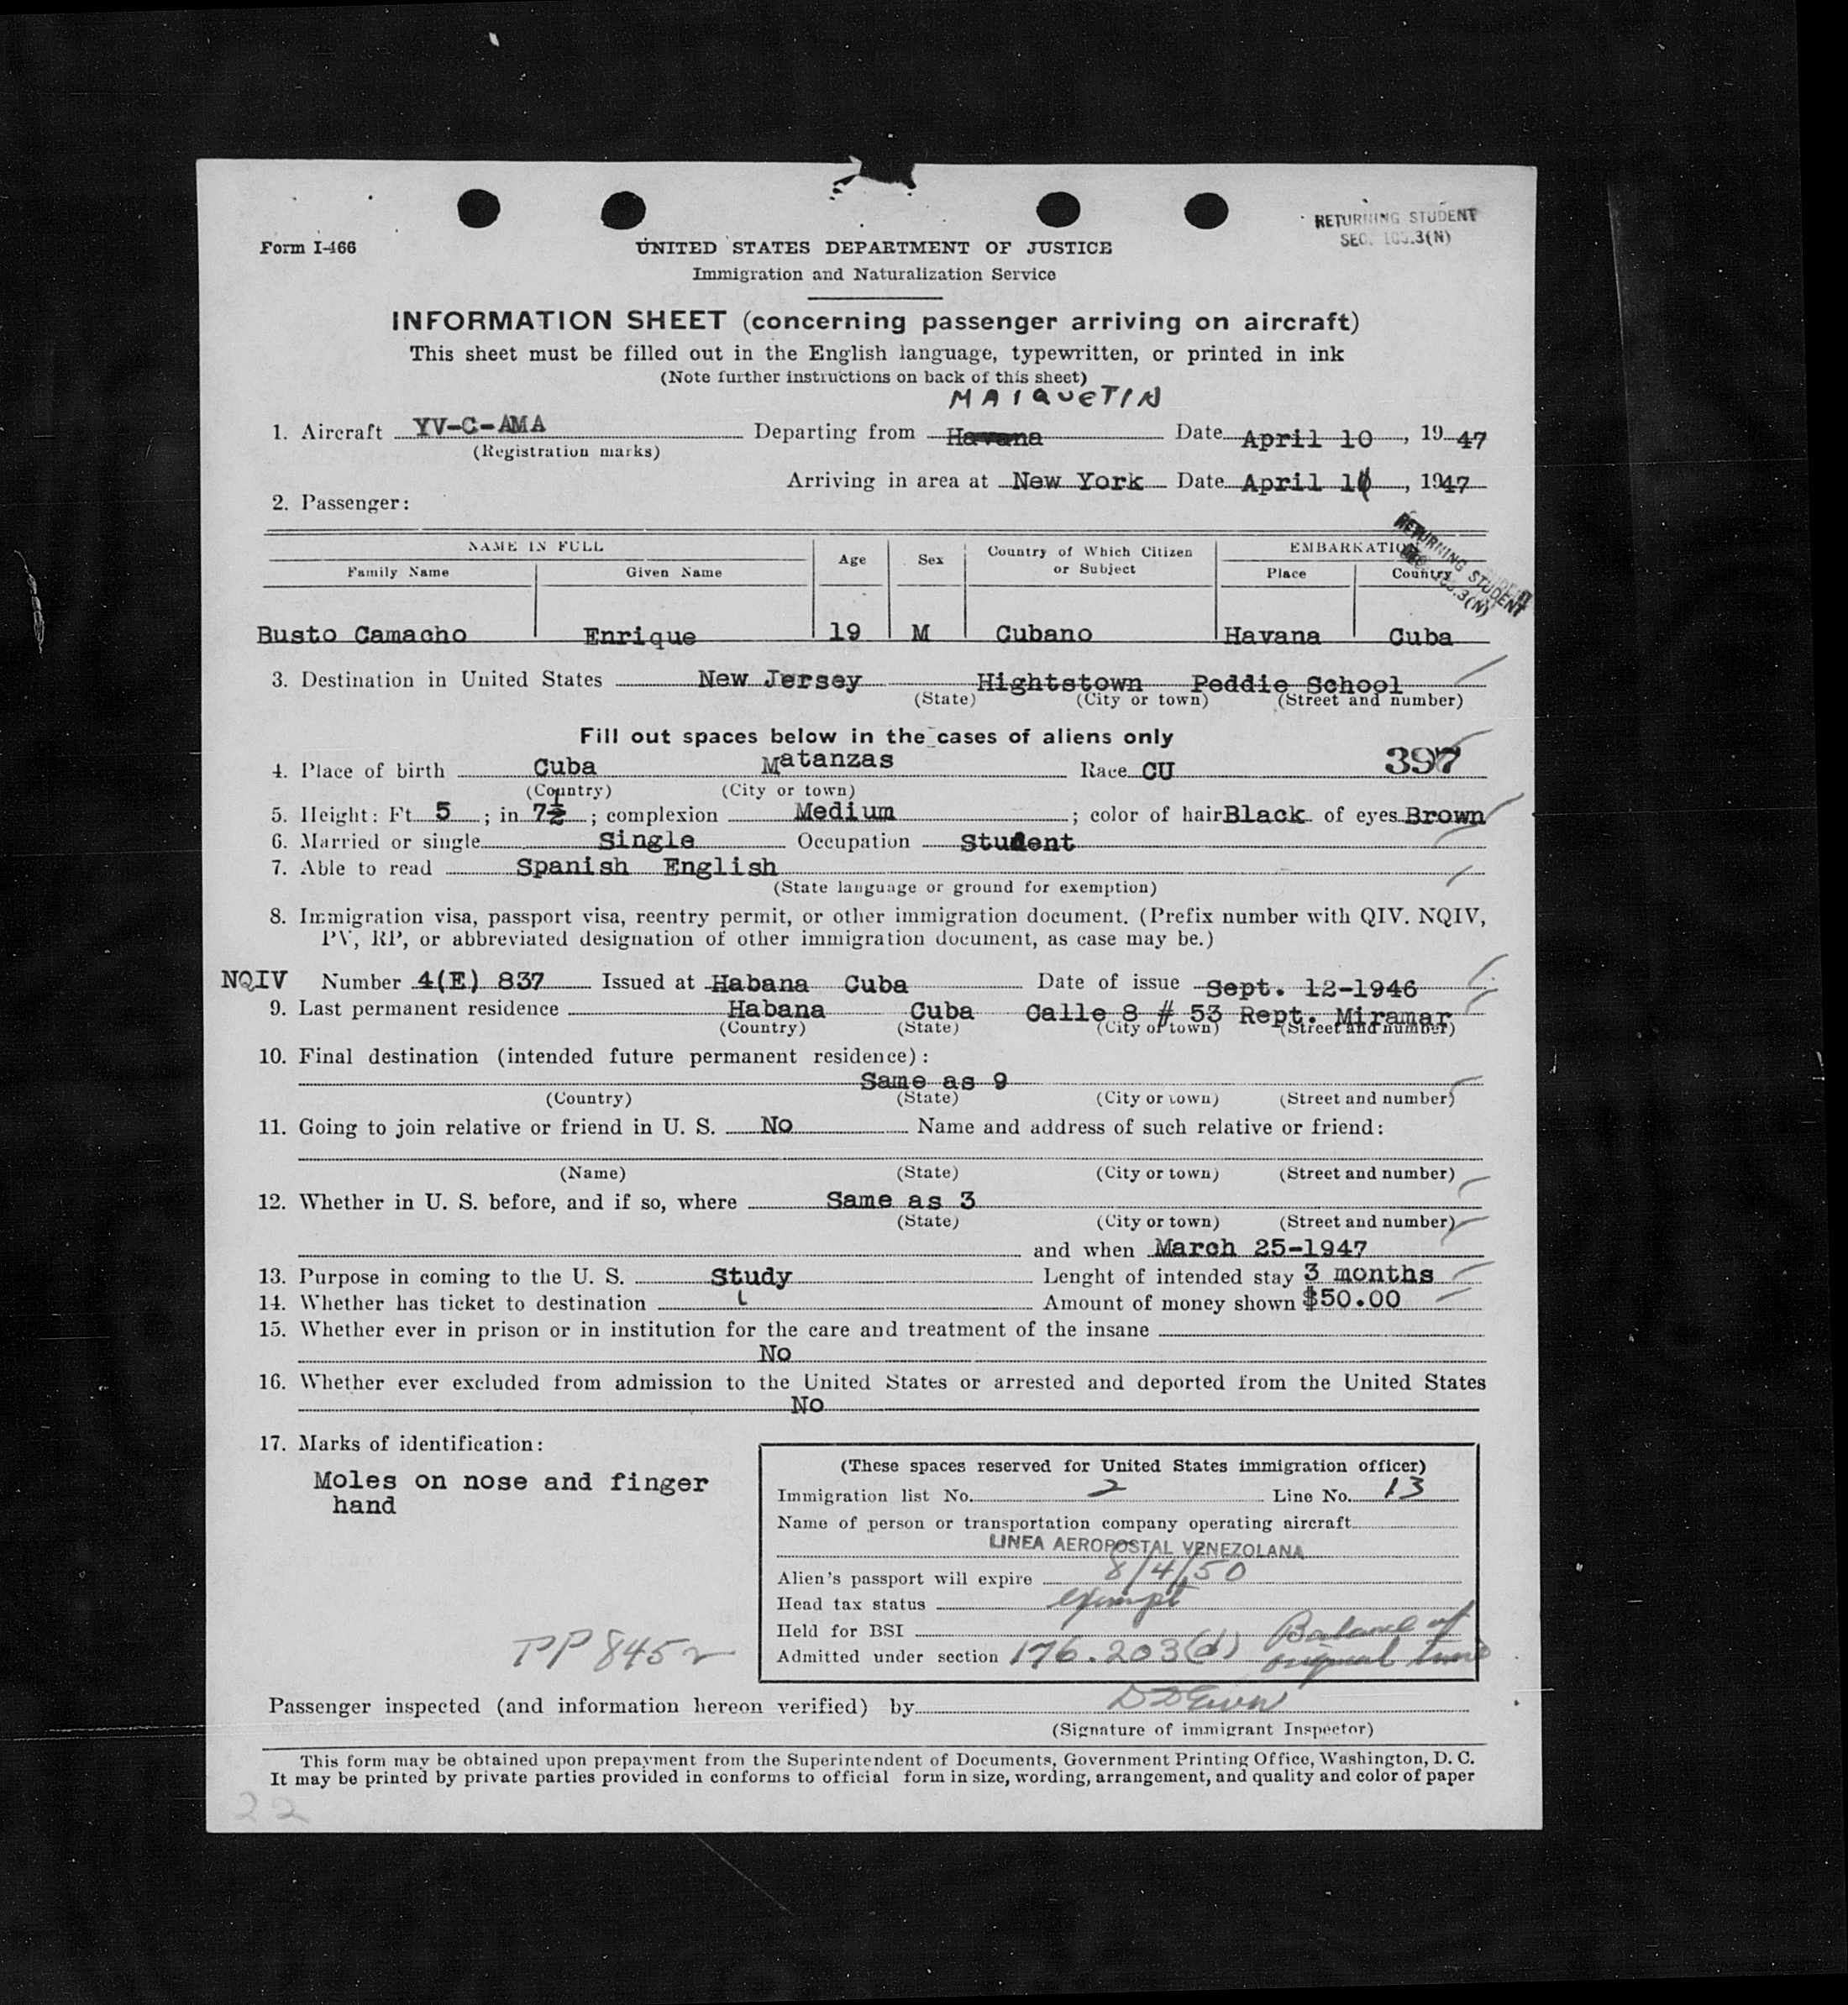 RETURNING STUDENT
SEC. 105.3(N)
Form I-466
UNITED STATES DEPARTMENT OF JUSTICE
Immigration and Naturalization Service
INFORMATION SHEET (concerning passenger arriving on aircraft)
This sheet must be filled out in the English language, typewritten, or printed in ink
(Note further instructions on back of this sheet)
MAIQUETIN
1. Aircraft YV-C-AMA Departing from Havana Date April 10, 1947
(Registration marks)
Arriving in area at New York Date April 1, 1947
2. Passenger:
RETURNING STUDENT
.3(N)
NAME IN FULL Age Sex Country of Which Citizen or Subject EMBARKATION
Family Name Given Name Place Country
Busto Camacho Enrique 19 M Cubano Havana Cuba
3. Destination in United States New Jersey Hightstown Peddie School
(State) (City or town) (Street and number)
Fill out spaces below in the cases of aliens only
397
4. Place of birth Cuba Matanzas Race CU
(Country) (City or town)
5. Height: Ft 5 ; in 7½ ; complexion Medium ; color of hair Black of eyes Brown
6. Married or single Single Occupation Student
7. Able to read Spanish English
(State language or ground for exemption)
8. Immigration visa, passport visa, reentry permit, or other immigration document. (Prefix number with QIV. NQIV,
PV, RP, or abbreviated designation of other immigration document, as case may be.)
NQIV Number 4(E) 837 Issued at Habana Cuba Date of issue Sept. 12-1946
9. Last permanent residence Habana Cuba Calle 8 # 53 Rept. Miramar
(Country) (State) (City or town) (Street and number)
10. Final destination (intended future permanent residence):
Same as 9
(Country) (State) (City or town) (Street and number)
11. Going to join relative or friend in U. S. No Name and address of such relative or friend:
(Name) (State) (City or town) (Street and number)
12. Whether in U. S. before, and if so, where Same as 3
(State) (City or town) (Street and number)
and when March 25-1947
13. Purpose in coming to the U. S. Study Lenght of intended stay 3 months
14. Whether has ticket to destination Amount of money shown $50.00
15. Whether ever in prison or in institution for the care and treatment of the insane
No
16. Whether ever excluded from admission to the United States or arrested and deported from the United States
No
17. Marks of identification:
Moles on nose and finger
hand
(These spaces reserved for United States immigration officer)
Immigration list No. 2 Line No. 13
Name of person or transportation company operating aircraft
LINEA AEROPOSTAL VENEZOLANA
Alien's passport will expire 8/4/50
Head tax status exempt
Held for BSI
Admitted under section 176.203(d) Balance of
original time
PP 8452
Passenger inspected (and information hereon verified) by
(Signature of immigrant Inspector)
This form may be obtained upon prepayment from the Superintendent of Documents, Government Printing Office, Washington, D. C.
It may be printed by private parties provided in conforms to official form in size, wording, arrangement, and quality and color of paper
22